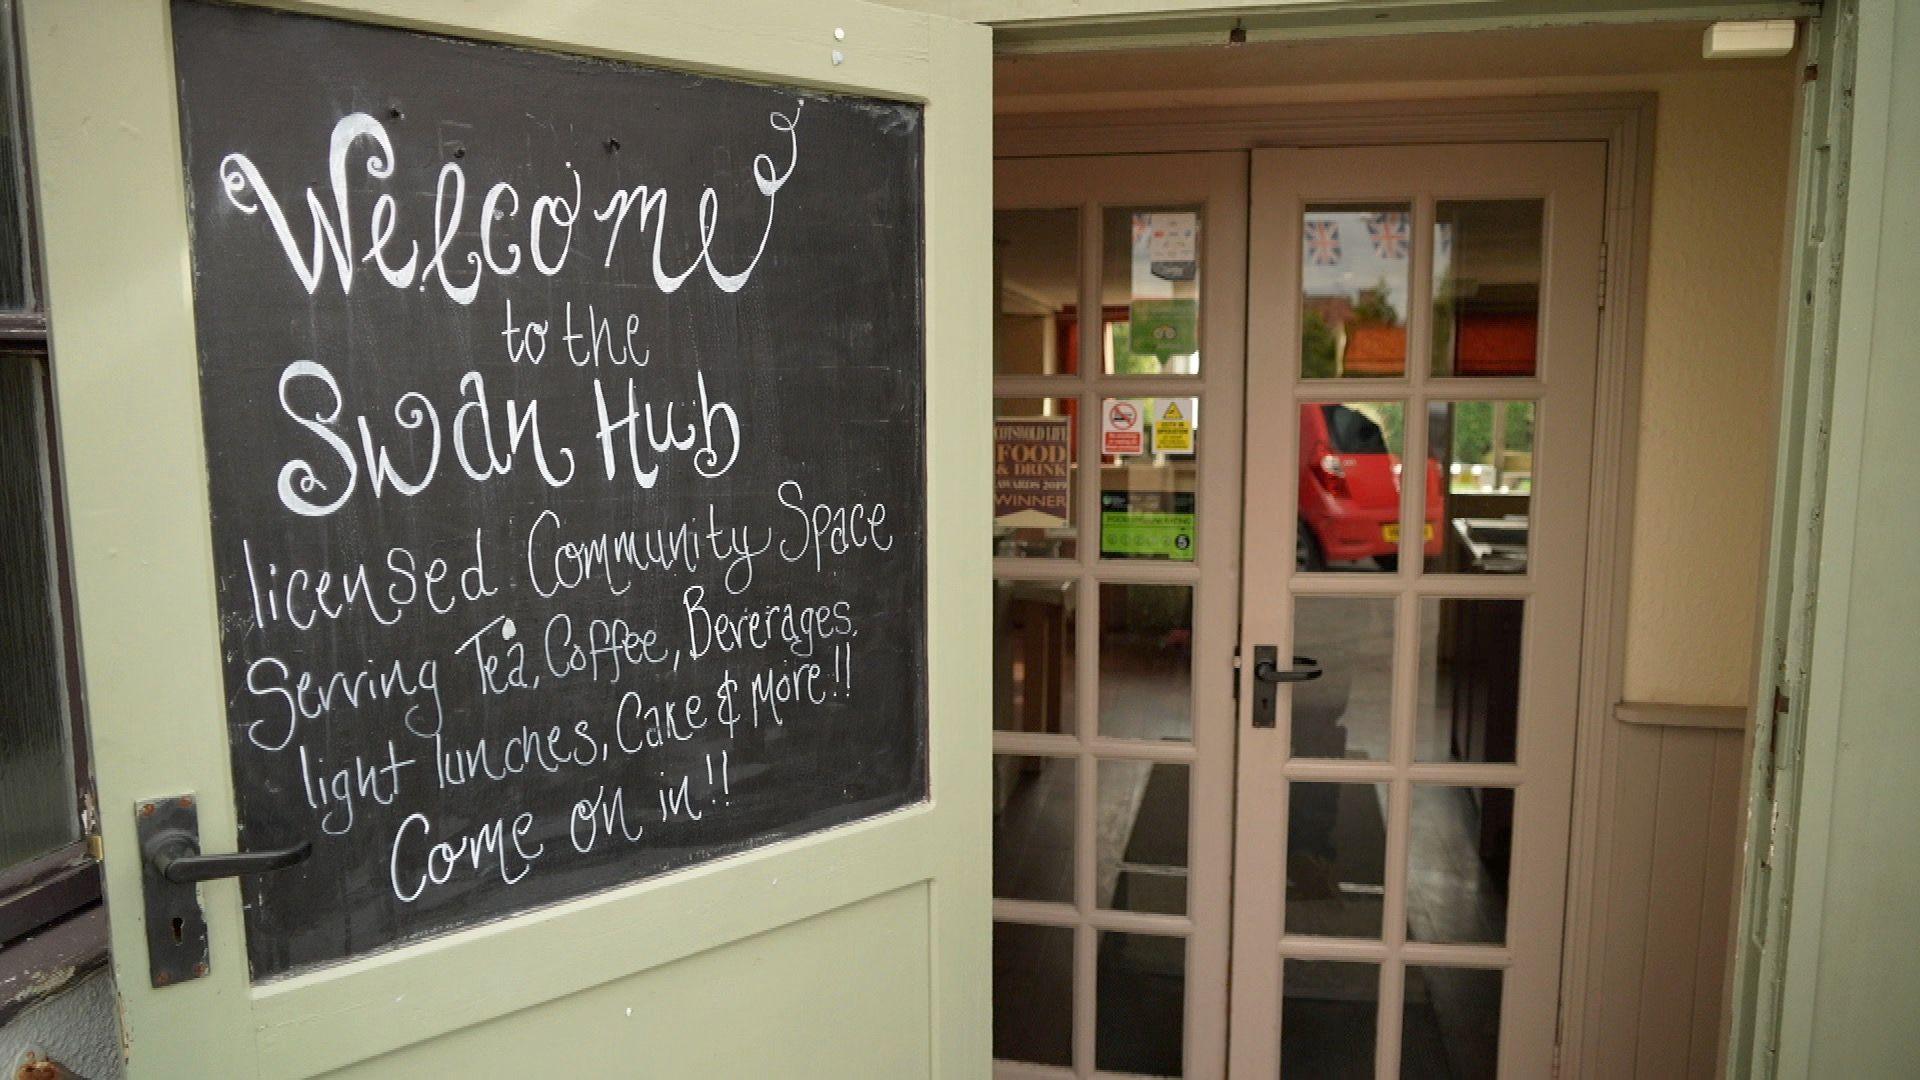 Welcome
to the
Swan Hub
licensed Community Space
Serving Tea, Coffee, Beverages,
light lunches, Cake & More!!
Come on in!!
COTSWOLD LIFE
FOOD
& DRINK
AWARDS 2019
WINNER
CCTV IN
OPERATION
FOOD HYGIENE RATING
5